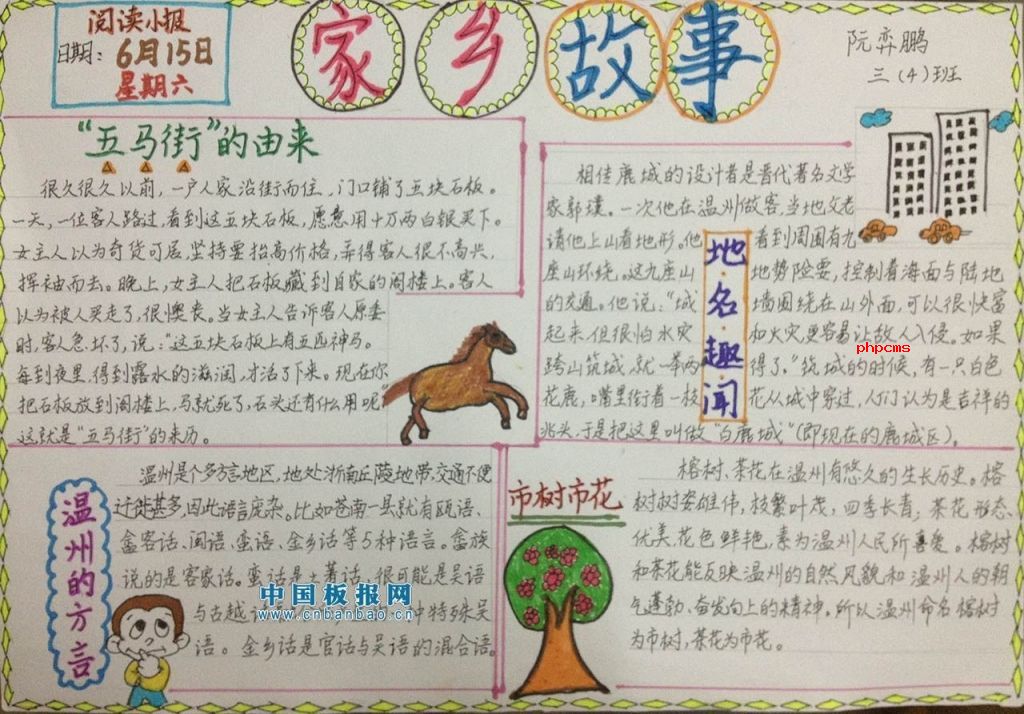 阅读小报
日期：6月15日
星期六
家乡故事
阮弈鹏
三（4）班
“五马街”的由来
很久很久以前，一户人家沿街而住，门口铺了五块石板。
一天，一位客人路过，看到这五块石板，愿意用十万两白银买下。
女主人以为奇货可居，坚持要抬高价格，弄得客人很不高兴，
挥袖而去。晚上，女主人把石板藏到自家的阁楼上。客人
以为被人买走了，很懊丧。当女主人告诉客人原委
时，客人急坏了，说：“这五块石板上有五匹神马。
每到夜里，得到露水的滋润，才活了下来。现在你
把石板放到阁楼上，马就死了，石头还有什么用呢”
这就是“五马街”的来历。
地名趣闻
相传鹿城的设计者是晋代著名文学
家郭璞。一次他在温州做客，当地父老
请他上山看地形。他看到周围有九
座山环绕。这九座山地势险要，控制着海面与陆地
的交通。他说：“城墙围绕在山外面，可以很快富
起来，但很怕水灾和火灾，更容易让敌人入侵。如果
跨山筑城，就一举两得了。”筑城的时候，有一只白色
花鹿，嘴里衔着一枝花从城中穿过，人们认为是吉祥的
兆头，于是把这里叫做“白鹿城”（即现在的鹿城区）。
phpcms
温州的方言
温州是个多方言地区，地处浙南丘陵地带，交通不便
迁徙甚多，因此语言庞杂。比如苍南一县就有瓯语、
畲客话、闽语、蛮语、金乡话等5种语言。畲族
说的是客家话。蛮话是土著话，很可能是吴语
与古越中特殊吴
语。金乡话是官话与吴语的混合语。
中国板报网
www.cnbanbao.cn
市树市花
榕树、茶花在温州有悠久的生长历史。榕
树树姿雄伟，枝繁叶茂，四季长青，茶花形态
优美，花色鲜艳，素为温州人民所喜爱。榕树
和茶花能反映温州的自然风貌和温州人的朝
气蓬勃、奋发向上的精神。所以温州命名榕树
为市树，茶花为市花。